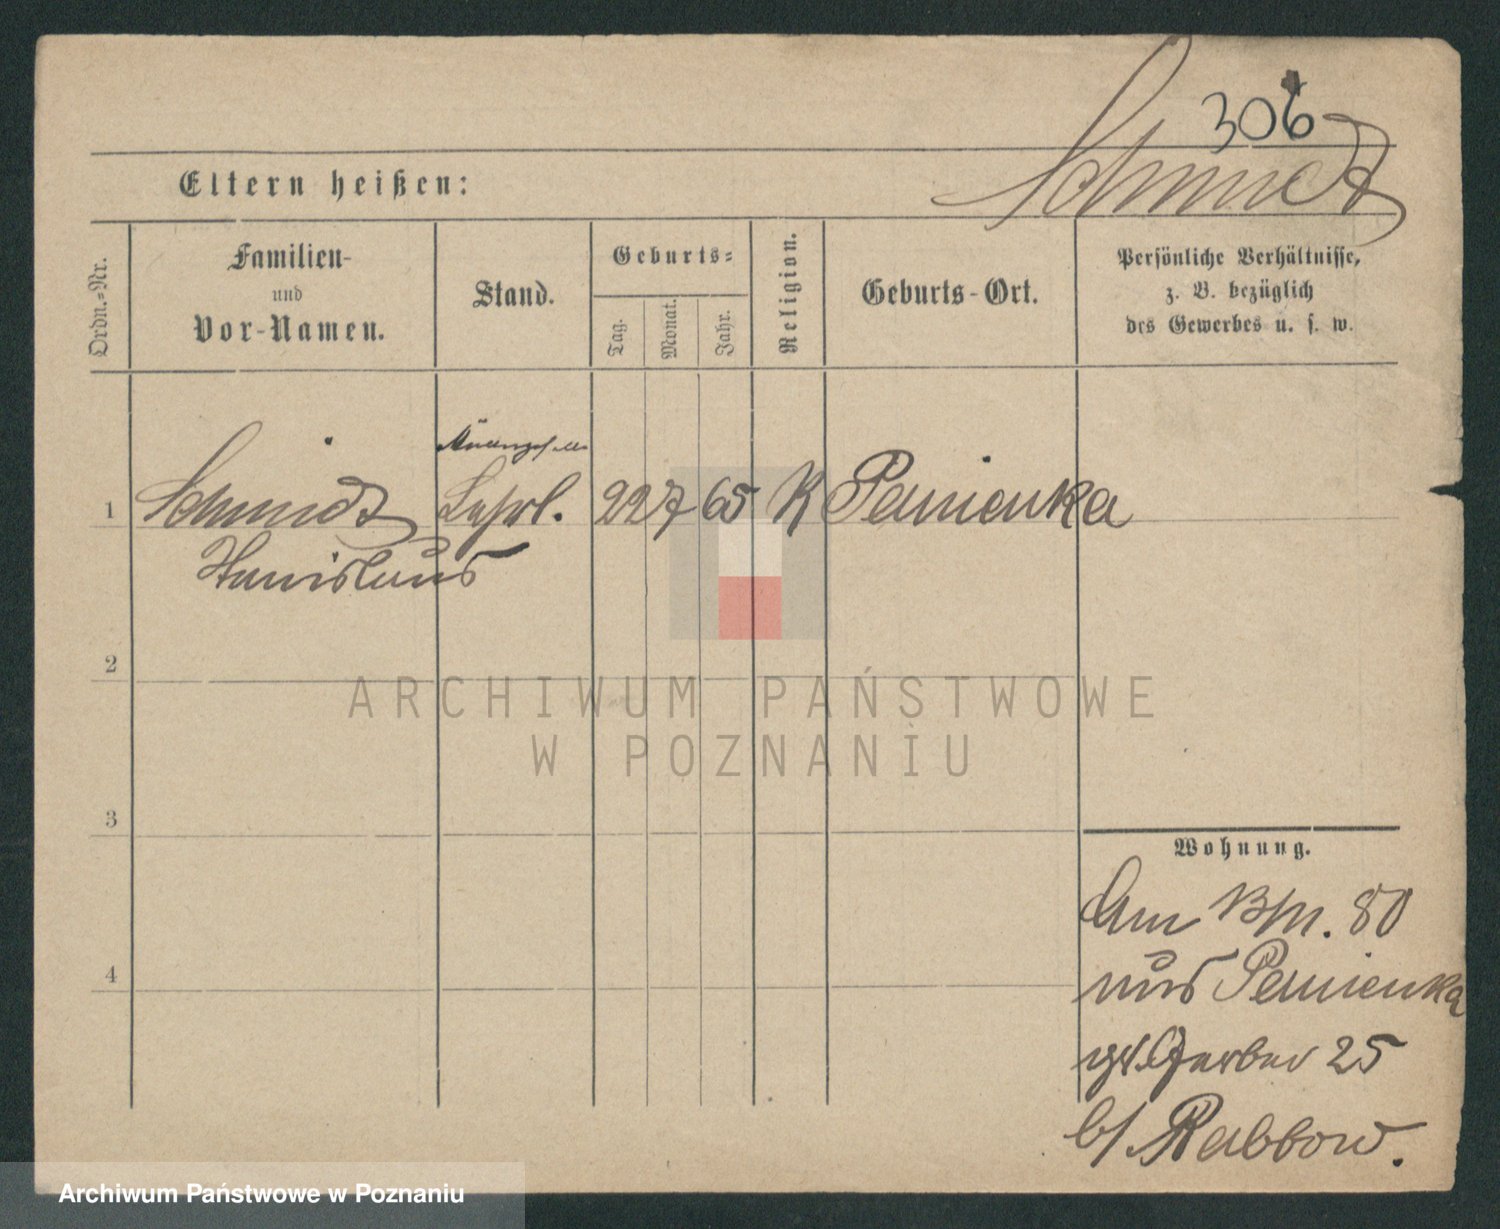 306
Schmidt
Eltern heißen:
Ordn.=Nr.
Familien-
und
Vor-Namen.
Stand.
Geburts=
Tag.
Monat.
Jahr.
Religion.
Geburts-Ort.
Persönliche Verhältnisse,
z. B. bezüglich
des Gewerbes u. s. w.
1 Schmidt Lehrl. 22 7 65 K Pemienka
Stanislaus
2
3
4
Wohnung.
Am 80
aus Pemienka
gr. Gerber 25
b/ Rabbow.
ARCHIWUM PAŃSTWOWE
W POZNANIU
Archiwum Państwowe w Poznaniu